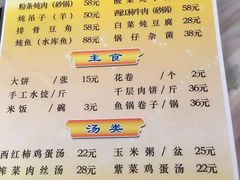 粉条炖肉(砂锅) 58元
炖吊子(羊) 50元
排骨豆角 58元
炖鱼(水库鱼) 88元
西红柿牛肉(砂锅)
白菜炖豆腐 28元
锅仔杂菌 38元
主食
大饼/张 15元
手工水饺/斤
米饭/碗 3元
花卷/个 2元
千层肉饼/斤 36元
鱼锅卷子/锅 36元
汤类
西红柿鸡蛋汤 22元
榨菜肉丝汤 28元
玉米粥/盆 25元
紫菜鸡蛋汤 22元